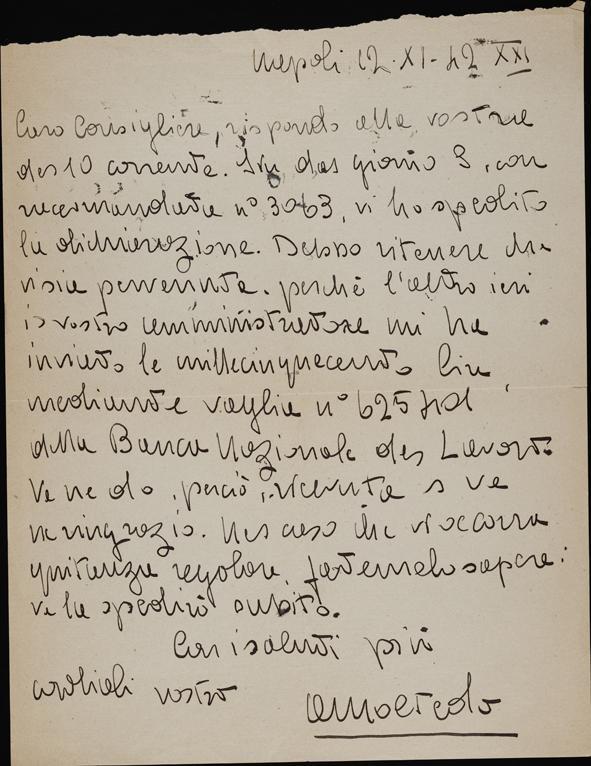 Napoli 12·XI-42 XXI
Caro Consigliere, rispondo alla vostra
del 10 corrente. Sin dal giorno 3, con
raccomandata n° 3063, vi ho spedito
la dichiarazione. Debbo ritenere che
vi sia pervenuta, perché l'altro ieri
il vostro amministratore mi ha
inviato le millecinquecento lire
mediante vaglia n°
della Banca Nazionale del Lavoro.
Ve ne do, perciò, ricevuta e ve
ne ringrazio. Nel caso che vi occorra
quitanza regolare, fatemelo sapere:
ve la spedirò subito.
Con i saluti più
cordiali vostro